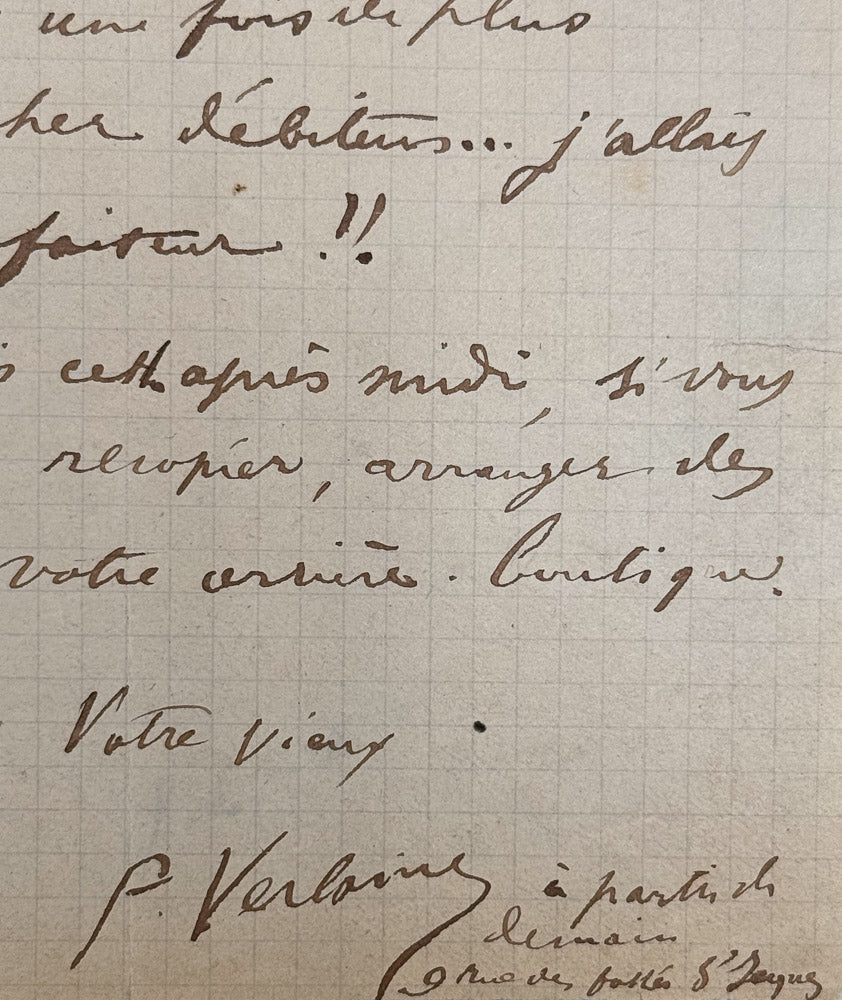 une fois de plus
her débiteur... j'allais
faiteur !!
cette après midi, si vous
recopier, arranger des
votre arrière-boutique.
Votre vieux
P. Verlaine
à partir de
demain
9 rue des fossés St Jacques